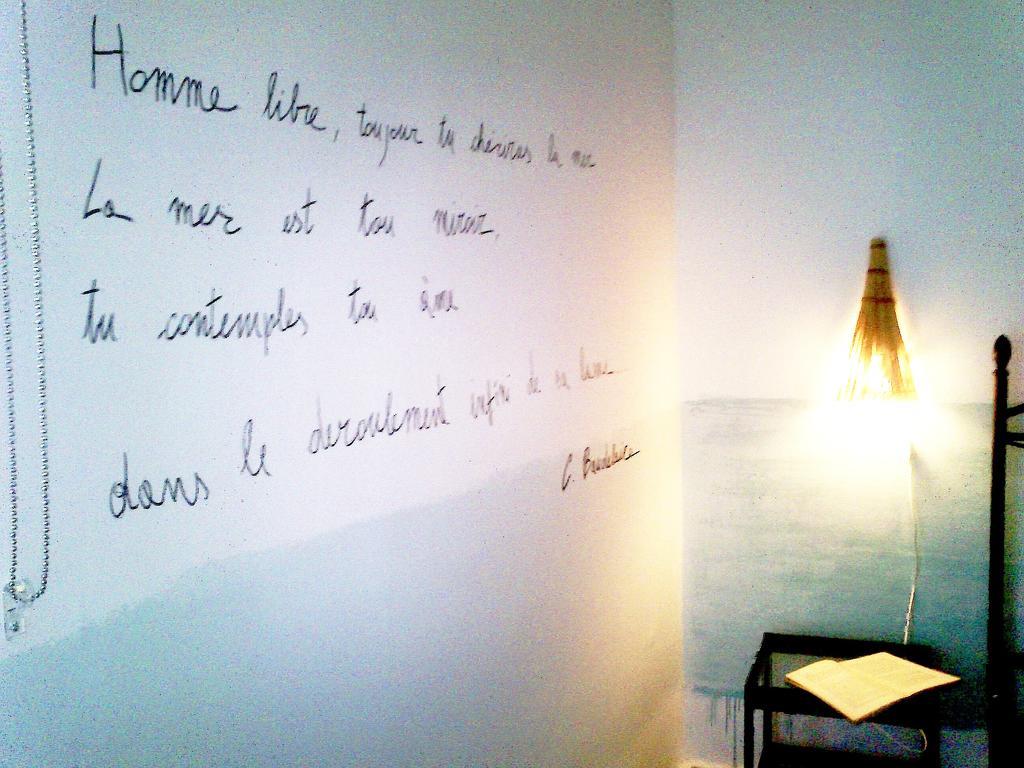 Homme libre, toujour tu chériras la mer
La mer est ton miroir,
tu contemples ton âme
dans le deroulement infini de sa lame...
C. Baudelaire